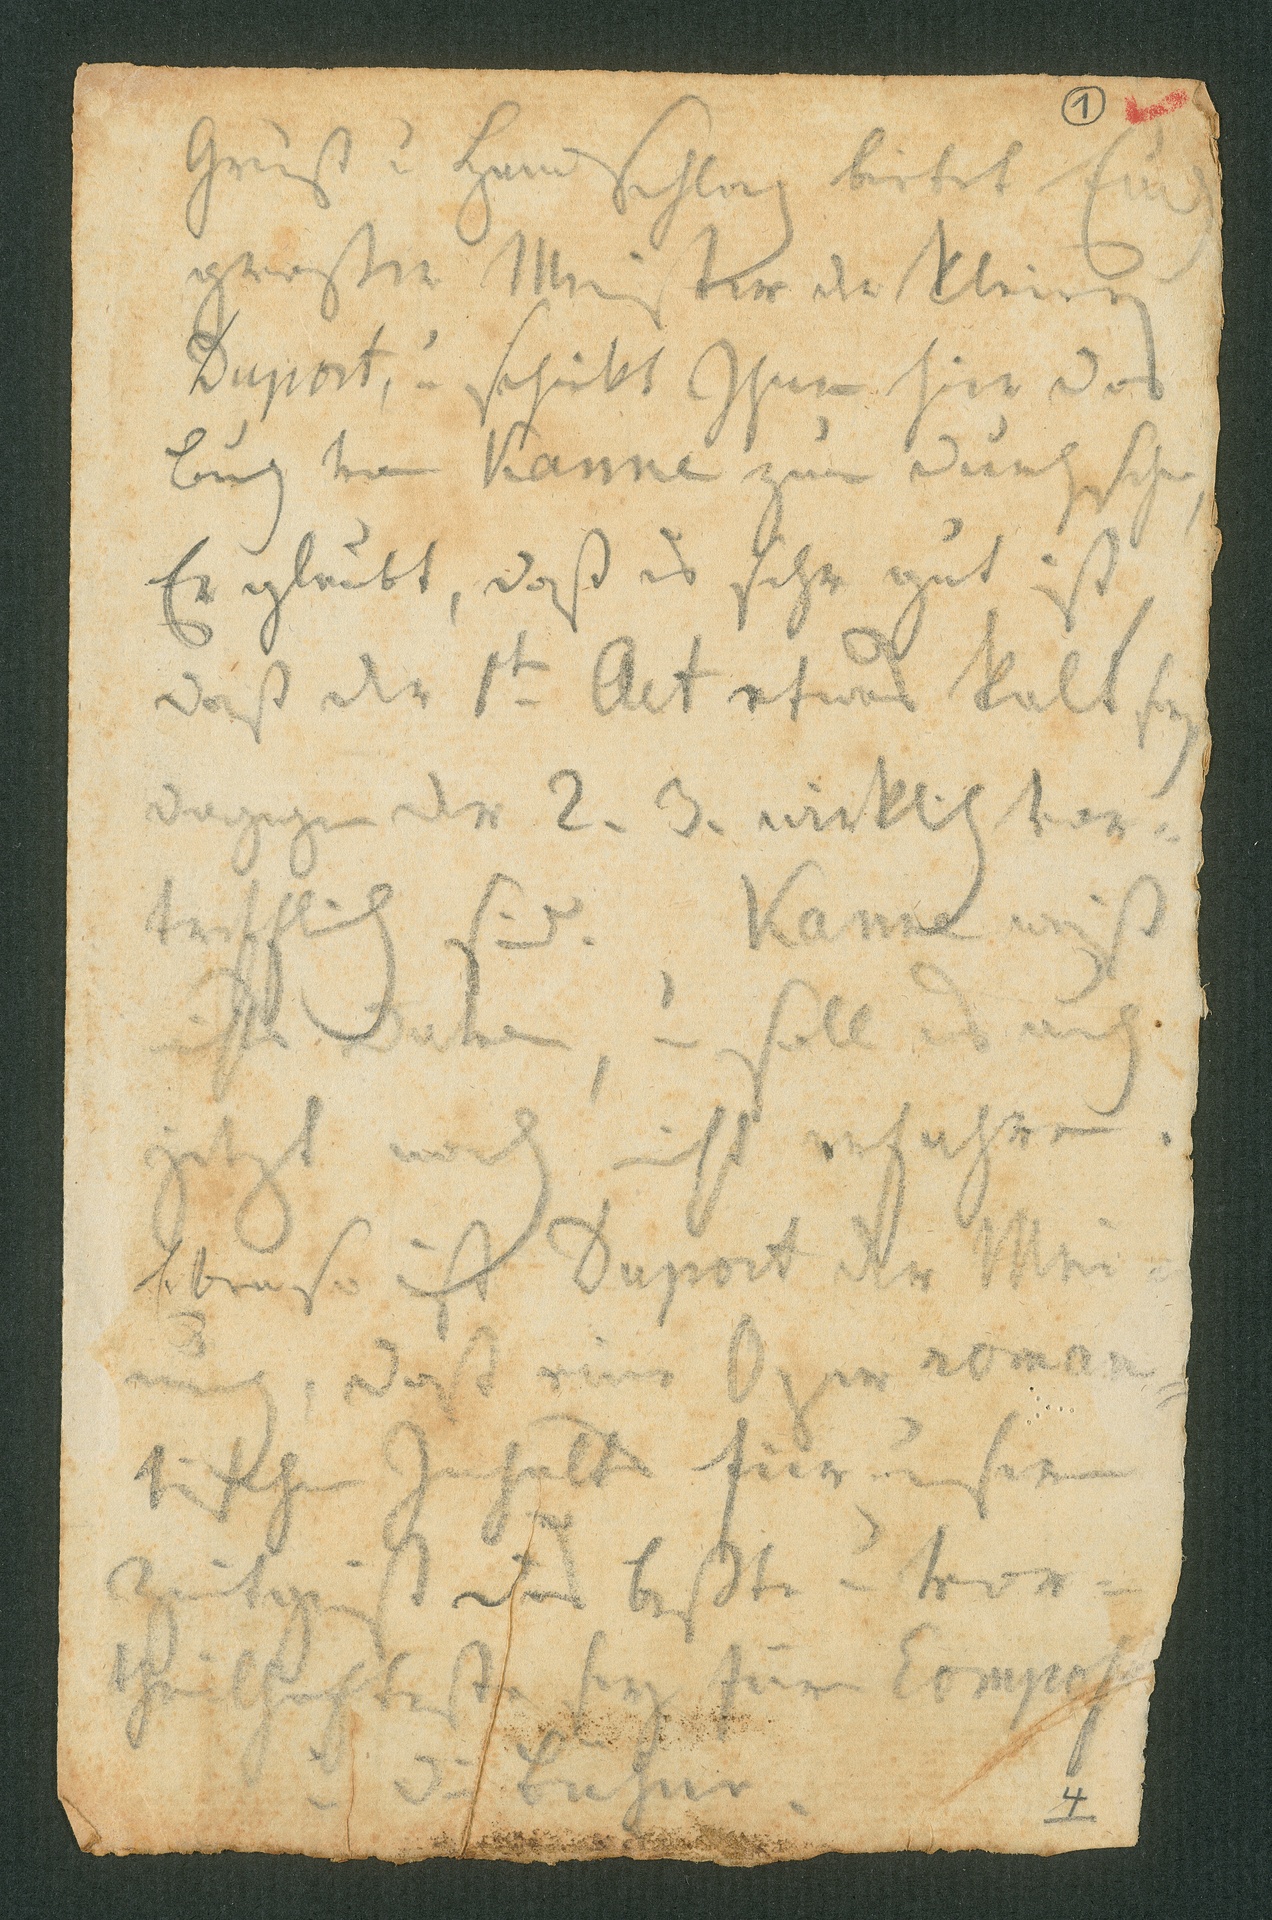 1
Gruß u HandSchlag bietet Euch
großer Meister der kleine
Duport, u schickt Ihnen hier das
Buch von Kanne zum durchsehn,
Er glaubt, daß es sehr gut ist
daß der 1te Act etwas kalt sey
dagegen der 2. 3. wirklich vor=
trefflich sind. Kanne weiß
nichts davon, u soll es auch
jetzt noch nicht erfahren.
Ebenso ist Duport der Mei=
nung, daß eine Oper roman=
tischen Inhalts für unsern
Zeitgeist das beßte u vor=
theilhafteste sey für Compos
u die Bühne.
4